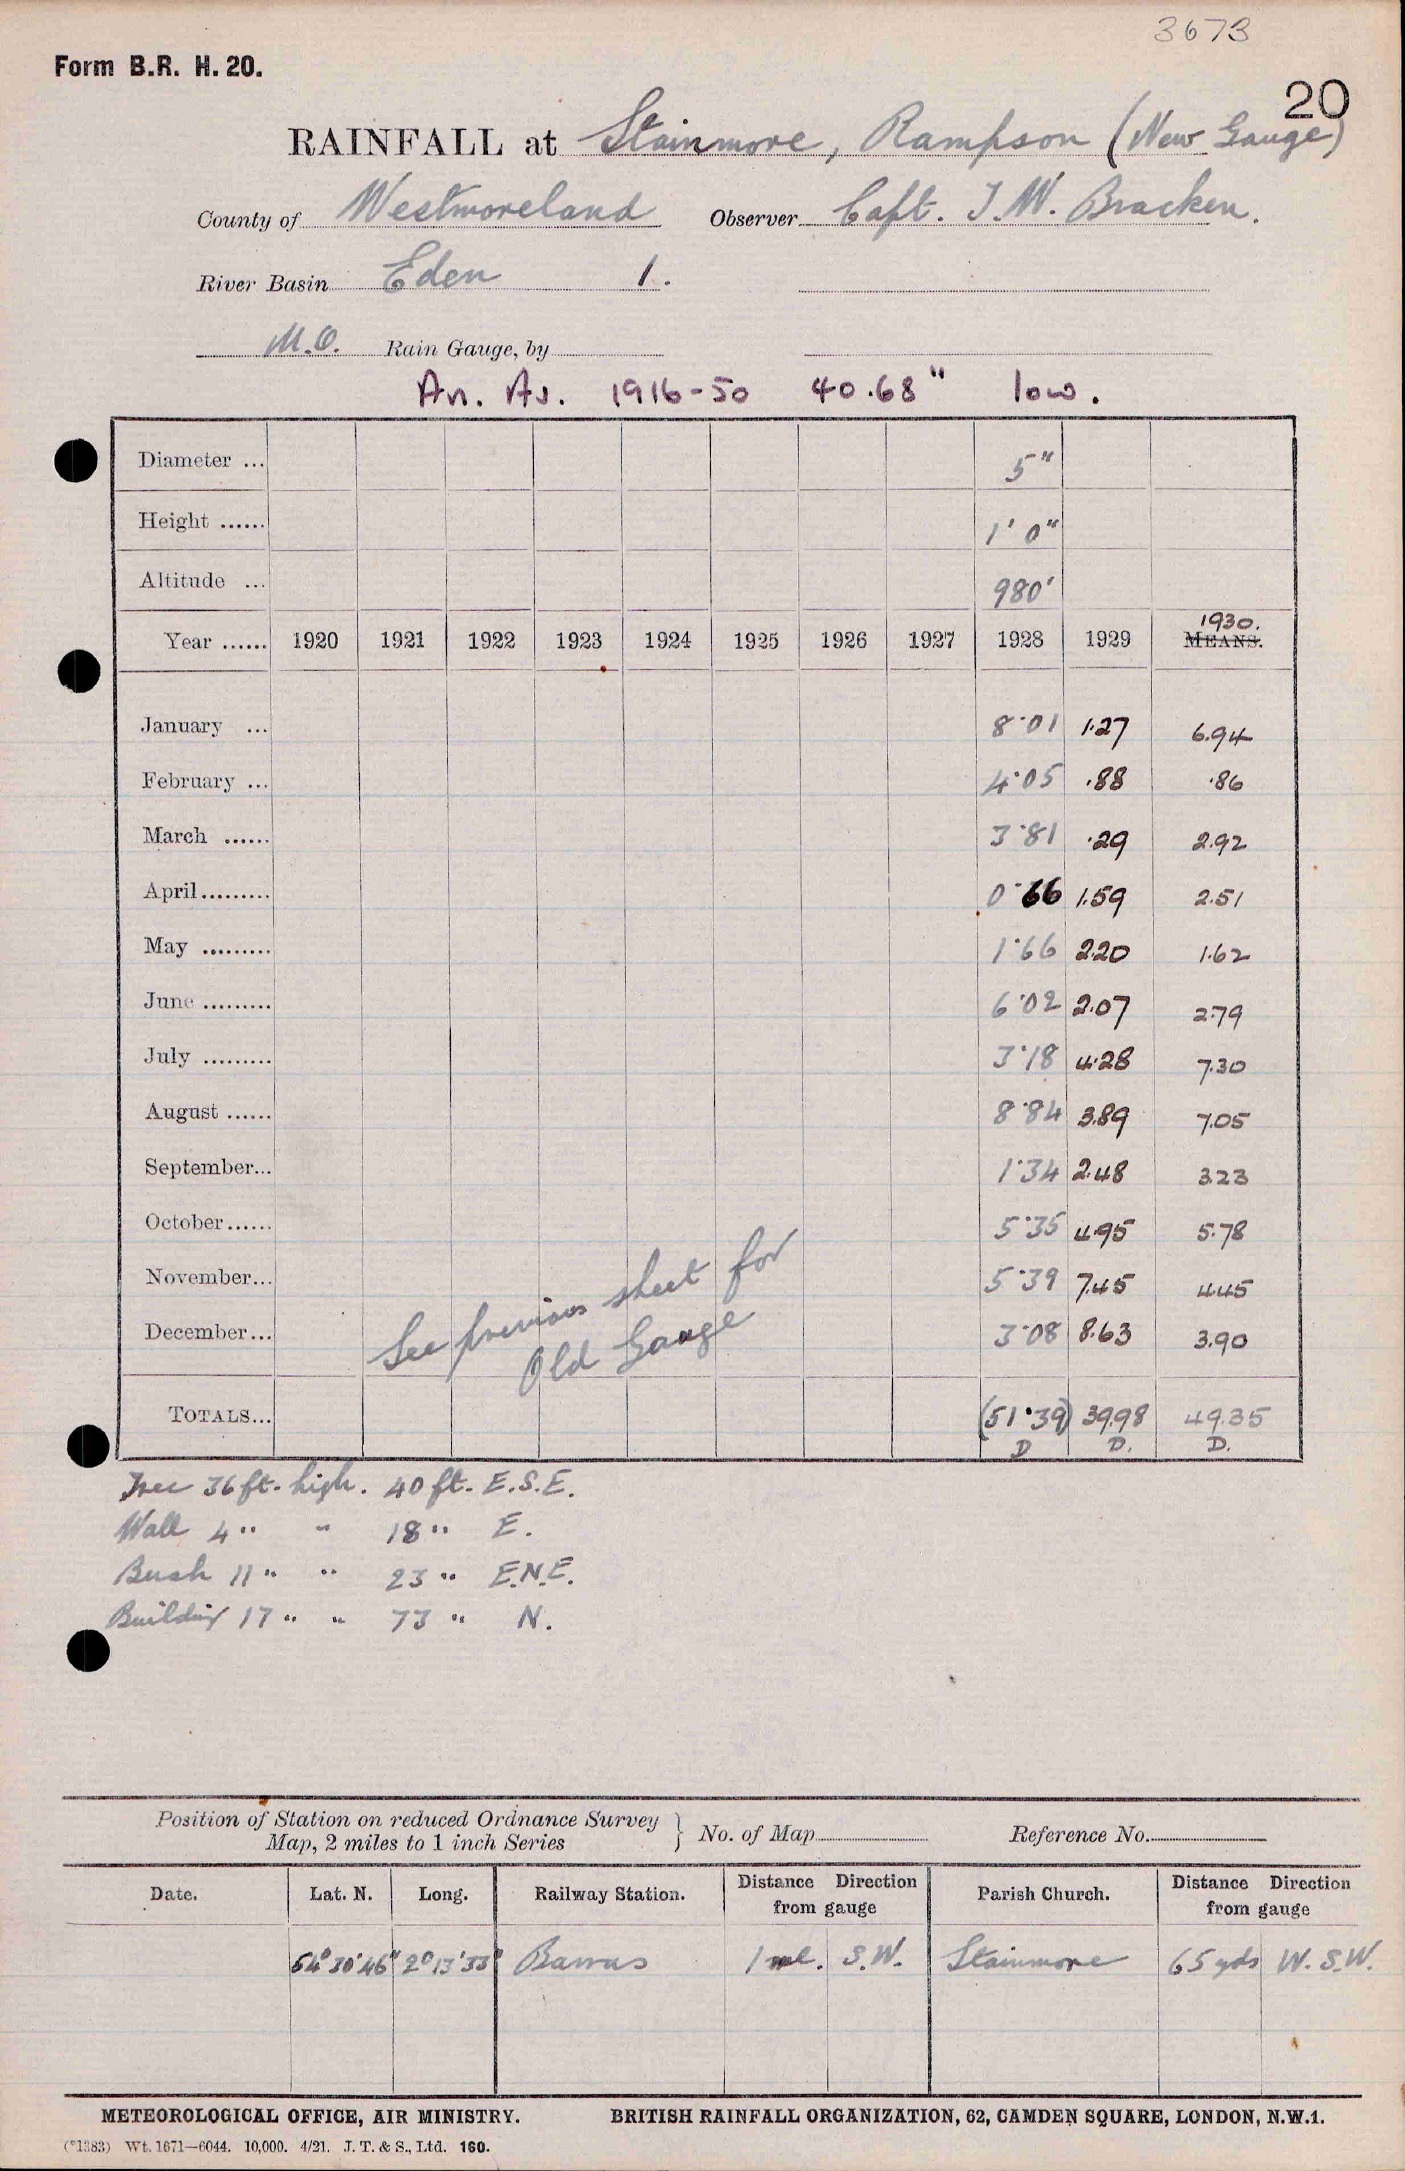 3673
Form B.R. H. 20.
20
RAINFALL at Stainmore, Rampson (New Gauge)
County of Westmoreland Observer Capt. J. W. Bracken.
River Basin Eden 1.
M.O. Rain Gauge, by
An. Av. 1916-50 40.68" low.
Diameter ... 5"
Height ...... 1' 0"
Altitude ... 980'
1930.
Year ...... 1920 1921 1922 1923 1924 1925 1926 1927 1928 1929 MEANS.
January ... 8·01 1.27 6.94
February ... 4·05 .88 .86
March ...... 3·81 .29 2.92
April ......... 0·66 1.59 2.51
May ......... 1·66 2.20 1.62
June ......... 6·02 2.07 2.79
July ......... 3·18 4.28 7.30
August ...... 8·84 3.89 7.05
September... 1·34 2.48 3.23
October...... 5·35 4.95 5.78
November... 5·39 7.45 4.45
December... 3·08 8.63 3.90
See previous sheet for
Old Gauge
TOTALS... (51·39) 39.98 49.35
D D. D.
Tree 36 ft. high. 40 ft. E.S.E.
Wall 4 " " 18 " E.
Bush 11 " " 23 " E.N.E.
Building 17 " " 73 " N.
Position of Station on reduced Ordnance Survey
Map, 2 miles to 1 inch Series } No. of Map Reference No.
Date. Lat. N. Long. Railway Station. Distance Direction from gauge Parish Church. Distance Direction from gauge
54° 30' 46" 2° 13' 33" Barras 1 ml. S.W. Stainmore 65 yds W. S.W.
METEOROLOGICAL OFFICE, AIR MINISTRY. BRITISH RAINFALL ORGANIZATION, 62, CAMDEN SQUARE, LONDON, N.W.1.
(*1383) Wt. 1671—6044. 10,000. 4/21. J. T. & S., Ltd. 160.